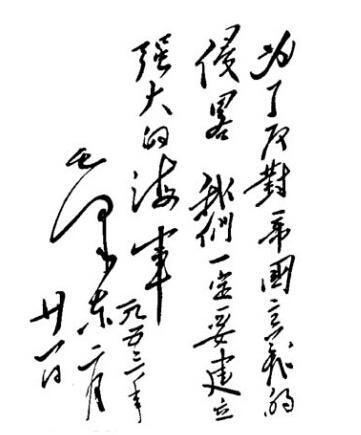 为了反對帝國主義的
侵畧 我們一定要建立
强大的海軍
毛澤東
一九五三年
二月
廿一日